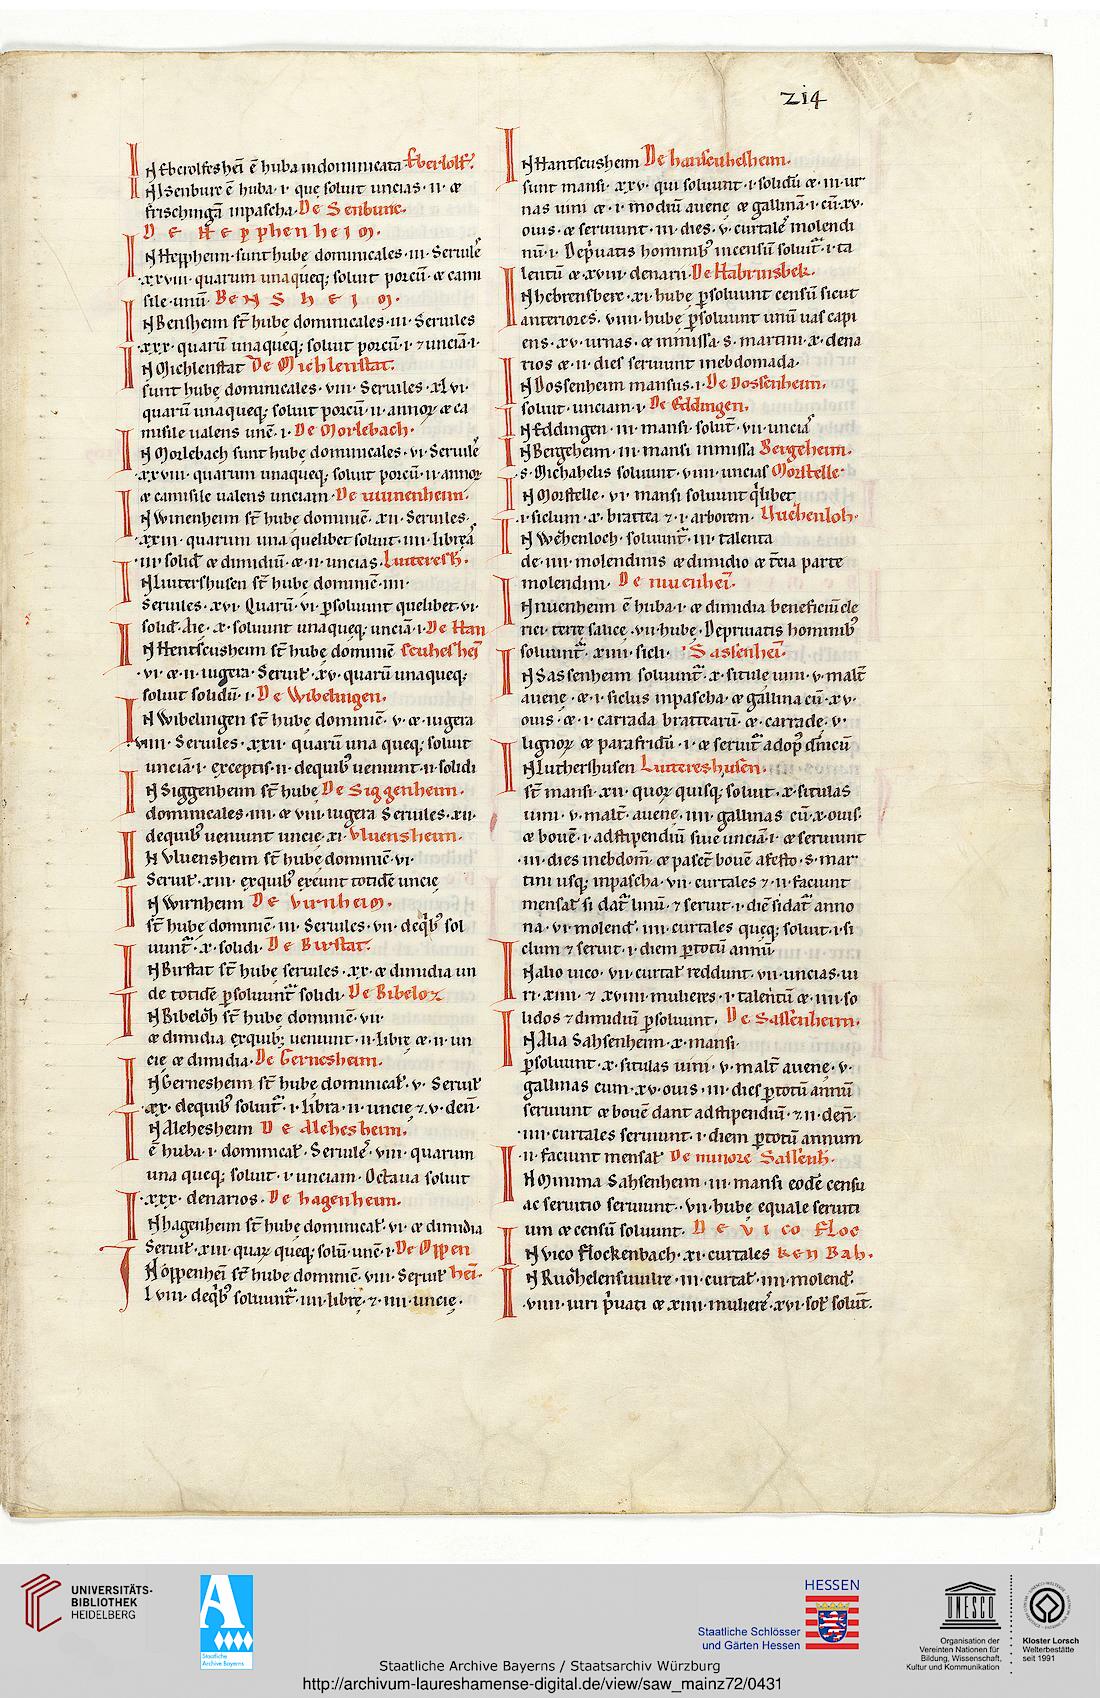 214
IN Eberolfesheī ē huba indominicata Eberlolf.
IN Isenburc ē huba ·i· que soluit uncias ·ii· &
frischingā inpascha· De Senburc.
De Hepphenheim.
IN Heppheim· sunt hubę dominicales ·iii· Seruilē
·xxviii· quarum unaqueq; soluit porcū & cami
sile· unū· Bensheim.
IN Bensheim st̄ hubę dominicales ·iii· Seruiles
·xxx· quarū unaqueq; soluit porcū ·i· ⁊ unciā ·i·
IN Michlenstat De Michlenstat.
sunt hubę dominicales ·viii· Seruiles ·xlvi·
quarū unaqueq; soluit porcū ·ii· annoꝝ & ca
misile ualens unc̄ ·i· De Morlebach.
IN Morlebach sunt hubę dominicales ·vi· Seruilē
·xxviii· quarum unaqueq; soluit porcū ·ii· annoꝝ
& camisile ualens unciam· De uuinenheim.
IN Winenheim st̄ hubę dominic̄ ·xii· Seruiles·
·xxiii· quarum una quelibet soluit ·iiii· libreā
·iii· solid̄ & dimidiū· & ·ii· uncias· Lutteresh.
IN Liutershusen st̄ hubę dominic̄ ·iii·
Seruiles ·xvi· Quarū ·vi· ꝑsoluunt quelibet ·vi·
solid̄· Alie ·x· soluunt unaqueq; unciā ·i· De Han
IN Hentscusheim st̄ hubę dominic̄ scuhesheī
·vi· & ·ii· iugera· Seruil̄ ·xv· quarū unaqueq;
soluit solidū ·i· De Wibelingen.
IN Wibelingen st̄ hubę dominic̄ ·v· & iugera
·viii· Seruiles ·xxii· quarū una queq; soluit
unciā ·i· exceptis ·ii· dequib; ueniunt ·ii· solidi
IN Siggenheim st̄ hubę De Siggenheim.
dominicales ·iiii· & ·viii· iugera Seruiles ·xii·
dequib; ueniunt uncię ·xi· Vluensheim.
IN Vluensheim st̄ hubę dominic̄ ·vi·
Seruil̄ ·xiii· exquib; exeunt totidē uncię
IN Wirnheim De virnheim.
st̄ hubę dominic̄ ·iii· Seruiles ·vii· deq̄b; sol
uunt̄ ·x· solidi· De Birstat.
IN Birstat st̄ hubę seruiles ·xx· & dimidia un
de totidē ꝑsoluunt̄ solidi· De Bibeloz
IN Bibelōh st̄ hubę dominic̄ ·vii·
& dimidia exquib; ueniunt ·ii· librę & ·ii· un
cię & dimidia· De Gernesheim.
IN Gernesheim st̄ hubę dominical̄ ·v· Seruil̄
·xx· dequib; soluit̄ ·i· libra ·ii· uncię ⁊ ·v· den̄·
IN Alehesheim De Alehesheim.
ē huba ·i· dominical̄· Seruilē ·viii· quarum
una queq; soluit ·i· unciam· Octaua soluit
·xxx· denarios· De hagenheim.
IN hagenheim st̄ hubę dominical̄ ·vi· & dimidia
Seruil̄ ·xiii· quaꝝ queq; solū unc̄ ·i· De Oppen
IN oppenheī st̄ hubę dominic̄ ·viii· Seruil̄ heī.
lviii· deq̄b; soluunt̄ ·iiii· librę ⁊ ·iiii· uncię·
IN Hantscusheim De hanscuhesheim.
sunt mansi ·xxv· qui soluunt ·i· solidū & ·iii· ur
nas uini & ·i· modiū auenę & gallinā ·i· cū ·xv·
ouis & seruiunt ·iii· dies ·v· curtalē molendi
nū ·i· Depriuatis hominib; incensū soluit̄ ·i· ta
lentū & ·xvii· denarii· De Habrinsbek.
IN hebrensberc ·xi· hubę ꝑsoluunt censū sicut
anteriores· viiii· hubę ꝑsoluunt unū uas capi
ens ·xv· urnas & inmissa ·s· martini ·x· dena
rios & ·ii· dies seruiunt inebdomada·
IN Dossenheim mansus ·i· De Dossenheim.
soluit unciam ·i· De Eddingen.
IN Eddingen ·iii· mansi solut̄ ·vii· unciā
IN Bergeheim ·iii· mansi inmissa Bergeheim.
·s· Michahelis soluunt ·viii· uncias Morstelle·
IN Morstelle ·vi· mansi soluunt q̄libet
·i· siclum ·x· brattea ⁊ ·i· arborem· Uuehenloh·
IN Wehenloch· soluunt̄ ·iii· talenta
de ·iii· molendinis & dimidio & tc̄ia parte
molendini· De niuenheī.
IN niuenheim ē huba ·i· & dimidia beneficiū cle
rici terrę salicę ·vii· hubę· Depriuatis hominib;
soluunt̄ ·xiiii· sicli· Sassenheī.
IN Sassenheim soluunt̄ ·x· situle uini ·v· malt̄
auenę· & ·i· siclus inpascha & gallina cū ·xv·
ouis· & ·i· carrada brattearū· & carradę ·v·
lignoꝝ & parafridū ·i· & seruit̄ adop̄ dn̄icū
IN Luthershusen Luttereshusen.
st̄ mansi ·xii· quoꝝ quisq; soluit ·x· situlas
uini ·v· malt̄ auenę ·iiii· gallinas cū ·x· ouis·
& bouē ·i· adstipendiū siue unciā ·i· & seruiunt
·iii· dies inebdom̄ & pascet̄ bouē afesto ·s· mar
tini usq; inpascha ·vii· curtales ⁊ ·ii· faciunt
mensal̄ si dat̄ linū ⁊ seruit ·i· diē sidat̄ anno
na ·vi· molend̄ ·iiii· curtales queq; soluit ·i· si
clum ⁊ seruit ·i· diem ꝑtotū annū
IN alio uico ·vii· curtal̄ reddunt ·vii· uncias· ui
ri ·xiiii· ⁊ xviii· mulieres ·i· talentū & ·iiii· so
lidos ⁊ dimidiū ꝑsoluunt· De Sassenheim.
IN Alia Sahsenheim ·x· mansi·
ꝑsoluunt ·x· situlas uini ·v· malt̄ auenę ·v·
gallinas cum ·xv· ouis ·iii· dies ꝑtotū annū
seruiunt & bouē dant adstipendiū ⁊ ·ii· den̄·
·iiii· curtales seruiunt ·i· diem ꝑtotū annum
·ii· faciunt mensal̄ De minore Sassenh.
IN ominima Sahsenheim ·iii· mansi eodē censu
ac seruitio seruiunt ·vii· hubę equale seruiti
um & censū soluunt· De vico floc
IN vico flockenbach ·xi· curtales ken Bah.
IN Ruohelensuuilre ·iii· curtal̄ ·iiii· molend̄·
·viiii· uiri p̄uati & xiiii· mulierē ·xvi· sol̄ solut̄·
UNIVERSITÄTS-
BIBLIOTHEK
HEIDELBERG
A
Staatliche
Archive Bayerns
HESSEN
Staatliche Schlösser
und Gärten Hessen
UNESCO
Organisation der
Vereinten Nationen für
Bildung, Wissenschaft,
Kultur und Kommunikation
Kloster Lorsch
Welterbestätte
seit 1991
Staatliche Archive Bayerns / Staatsarchiv Würzburg
http://archivum-laureshamense-digital.de/view/saw_mainz72/0431